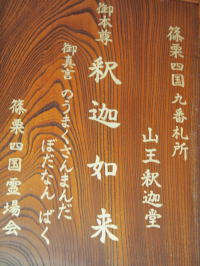 篠栗四国九番札所
山王釈迦堂
御本尊 釈迦如来
御真言 のうまくさんまんだ
ぼだなん ばく
篠栗四国霊場会